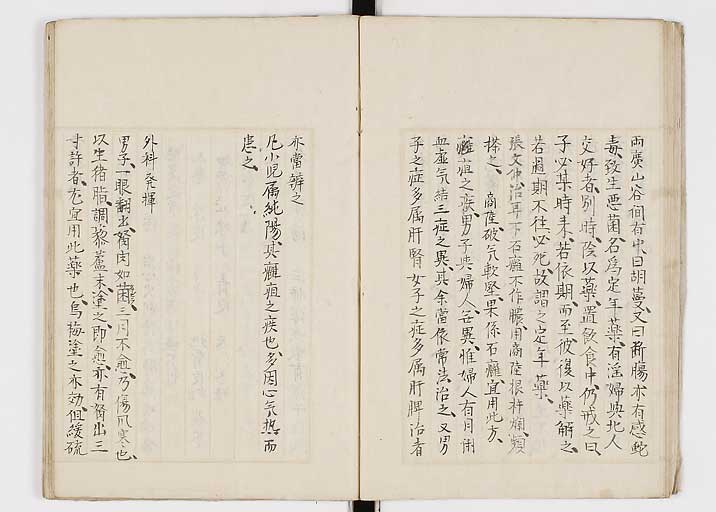 両廣山谷間有中曰胡蔓又曰断腸亦有感蛇
毒致生悪菌名爲定年藥有淫婦與北人
交好者別時陰以藥置飲食中仍戒之曰
子必某時来若依期而至彼復以藥解之
若過期不徃必死故謂之定年藥
張文仲治耳下石癰不作膿用商陸根杵爛頻
搽之商陸破気軟堅果係石癰宜用此方
癰疽之疾男子與婦人無異惟婦人有月
血虚气結三症之異其余當依常法治之又男
子之症多属肝腎女子之症多属肝脾治者
亦當辨之
凡小児属純陽其癰疽之疾也多因心气热而
患之
外科発揮
男子一眼翻出努肉如菌三月不愈乃傷風寒也
以生猪脂調藜蘆末塗之即愈亦有努出三
寸許者尤宜用此藥也烏梅塗之亦効但緩硫